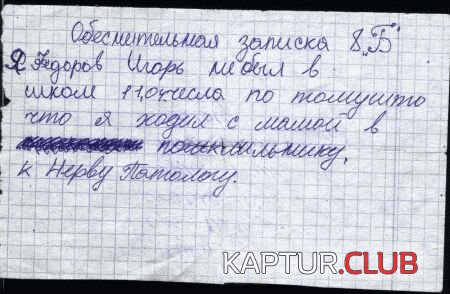 Обеснительная записка 8 „Б"
Я Федоров Игорь не был в
школ 11,04 числа по томушто
что я ходил с мамой в
к Нерву Патологу.
KAPTUR.CLUB